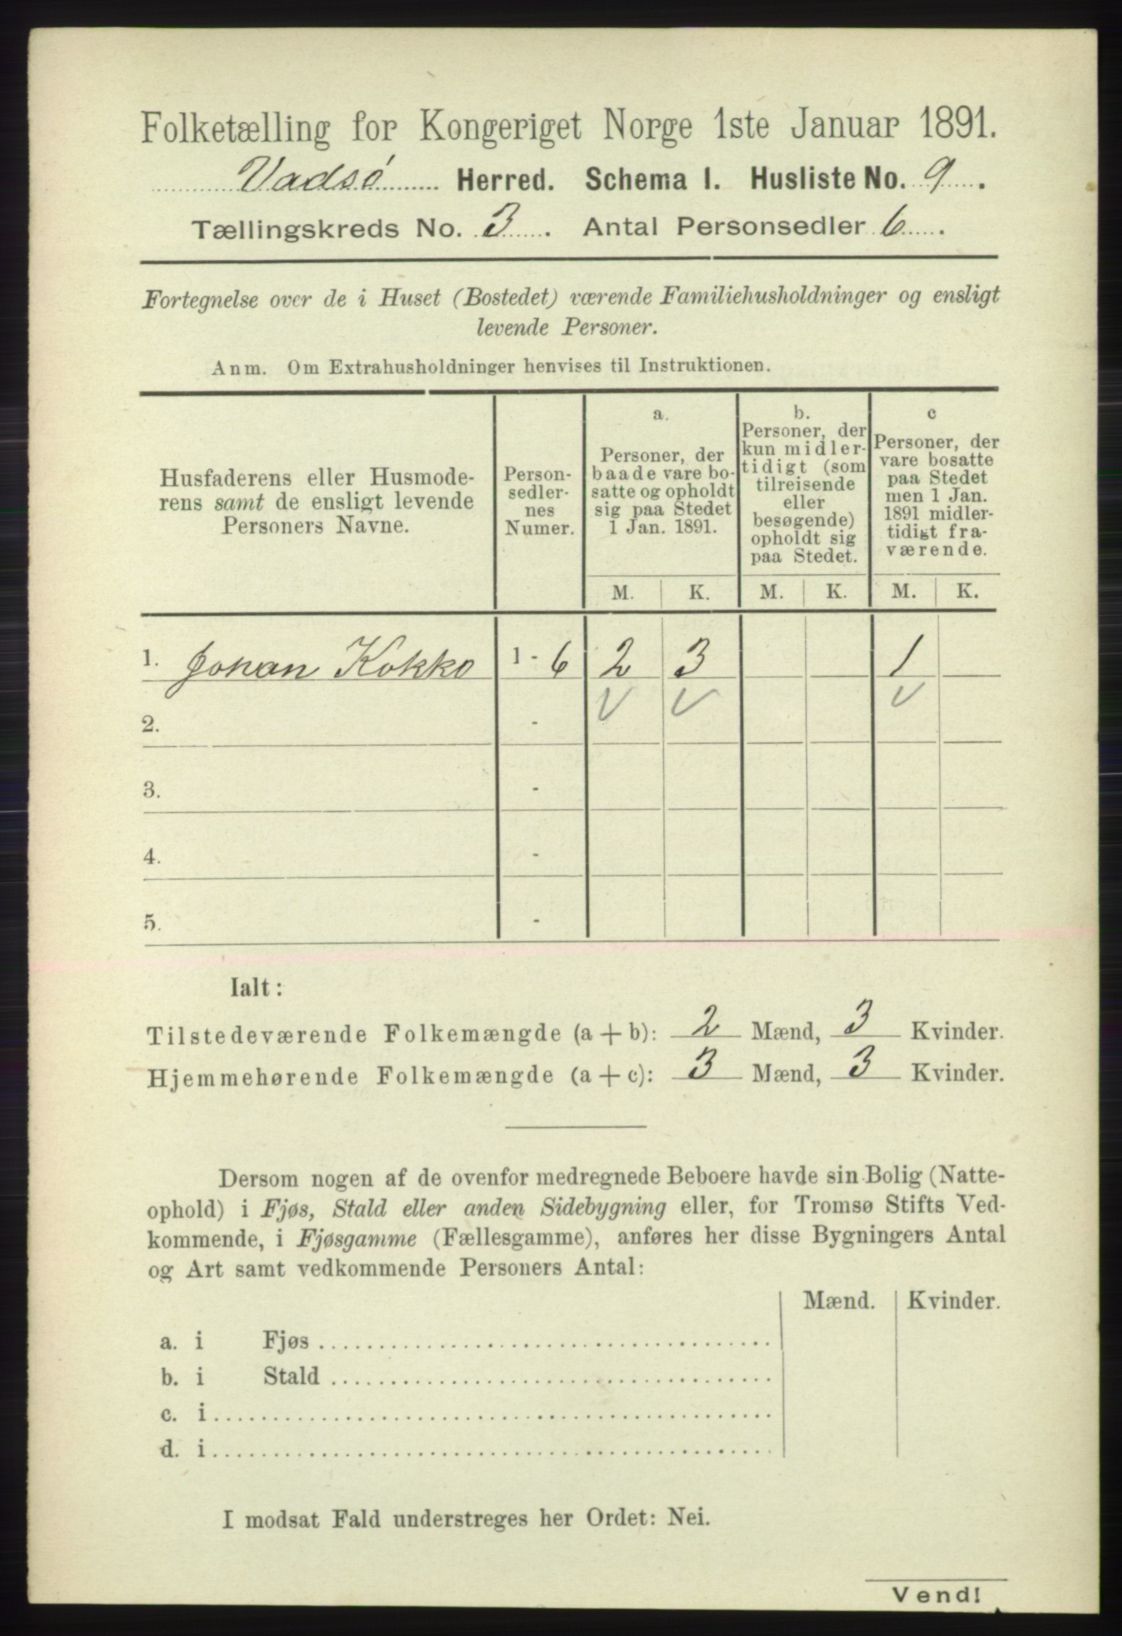 Folketælling for Kongeriget Norge 1ste Januar 1891.
Vadsø Herred. Schema I. Husliste No. 9.
Tællingskreds No. 3. Antal Personsedler 6.
Fortegnelse over de i Huset (Bostedet) værende Familiehusholdninger og ensligt
levende Personer.
Anm. Om Extrahusholdninger henvises til Instruktionen.
Husfaderens eller Husmode-
rens samt de ensligt levende
Personers Navne.
Person-
sedler-
nes
Numer.
a.
Personer, der
baade vare bo-
satte og opholdt
sig paa Stedet
1 Jan. 1891.
b.
Personer, der
kun midler-
tidigt (som
tilreisende
eller
besøgende)
opholdt sig
paa Stedet.
c
Personer, der
vare bosatte
paa Stedet
men 1 Jan.
1891 midler-
tidigt fra-
værende.
M. K. M. K. M. K.
1. Johan Kokko 1 - 6 2 3 1
2. - ✓ ✓ ✓
3. -
4. -
5. -
Ialt:
Tilstedeværende Folkemængde (a + b): 2 Mænd, 3 Kvinder.
Hjemmehørende Folkemængde (a + c): 3 Mænd, 3 Kvinder.
Dersom nogen af de ovenfor medregnede Beboere havde sin Bolig (Natte-
ophold) i Fjøs, Stald eller anden Sidebygning eller, for Tromsø Stifts Ved-
kommende, i Fjøsgamme (Fællesgamme), anføres her disse Bygningers Antal
og Art samt vedkommende Personers Antal:
Mænd. Kvinder.
a. i Fjøs
b. i Stald
c. i
d. i
I modsat Fald understreges her Ordet: Nei.
Vend!